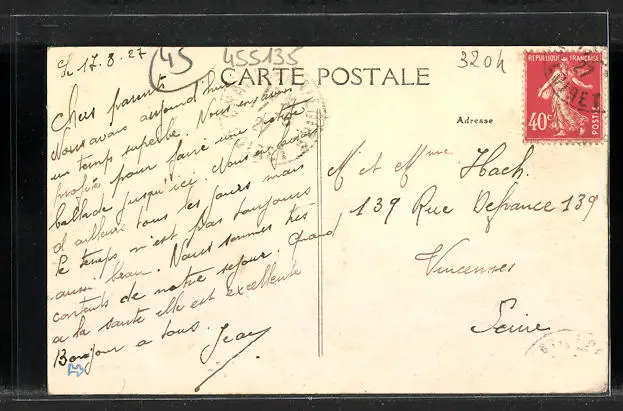 Le 17.8.27
45
455135
3204
CARTE POSTALE
REPUBLIQUE FRANÇAISE
40c
POSTES
Adresse
Chers parents
Nous avons aujourd'hui
un temps superbe. Nous en avons
profité pour faire une petite
ballade jusqu'ici. Nous en faisons
d'ailleurs tous les jours mais
le temps n'est pas toujours
aussi beau. Nous sommes très
contents de notre séjour. Quand
a la santé elle est excellente
Bonjour a tous. Jean
Mr et Mme Hach.
139 Rue Defrance 139
Vincennes
Seine